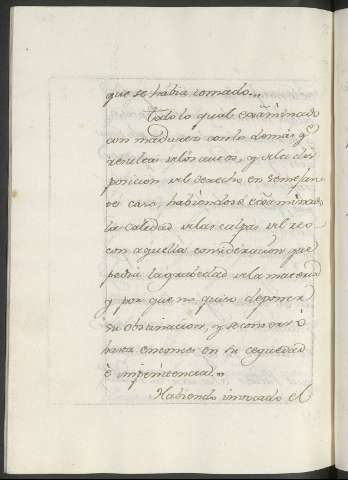 que se habia tomado...
Todo lo qual examinado
con madurez con lo demas q.e
resulta de los autos, y de la dis
posicion del derecho en semejan
te caso, habiendose examinado
la calidad de las culpas del reo
con aquella consideracion que
pedia la gravedad de la materia
y por que no quiso deponer
su obstinacion, y se conservó
hasta entonces en su ceguedad
è impenitencia..
Habiendo invocado el